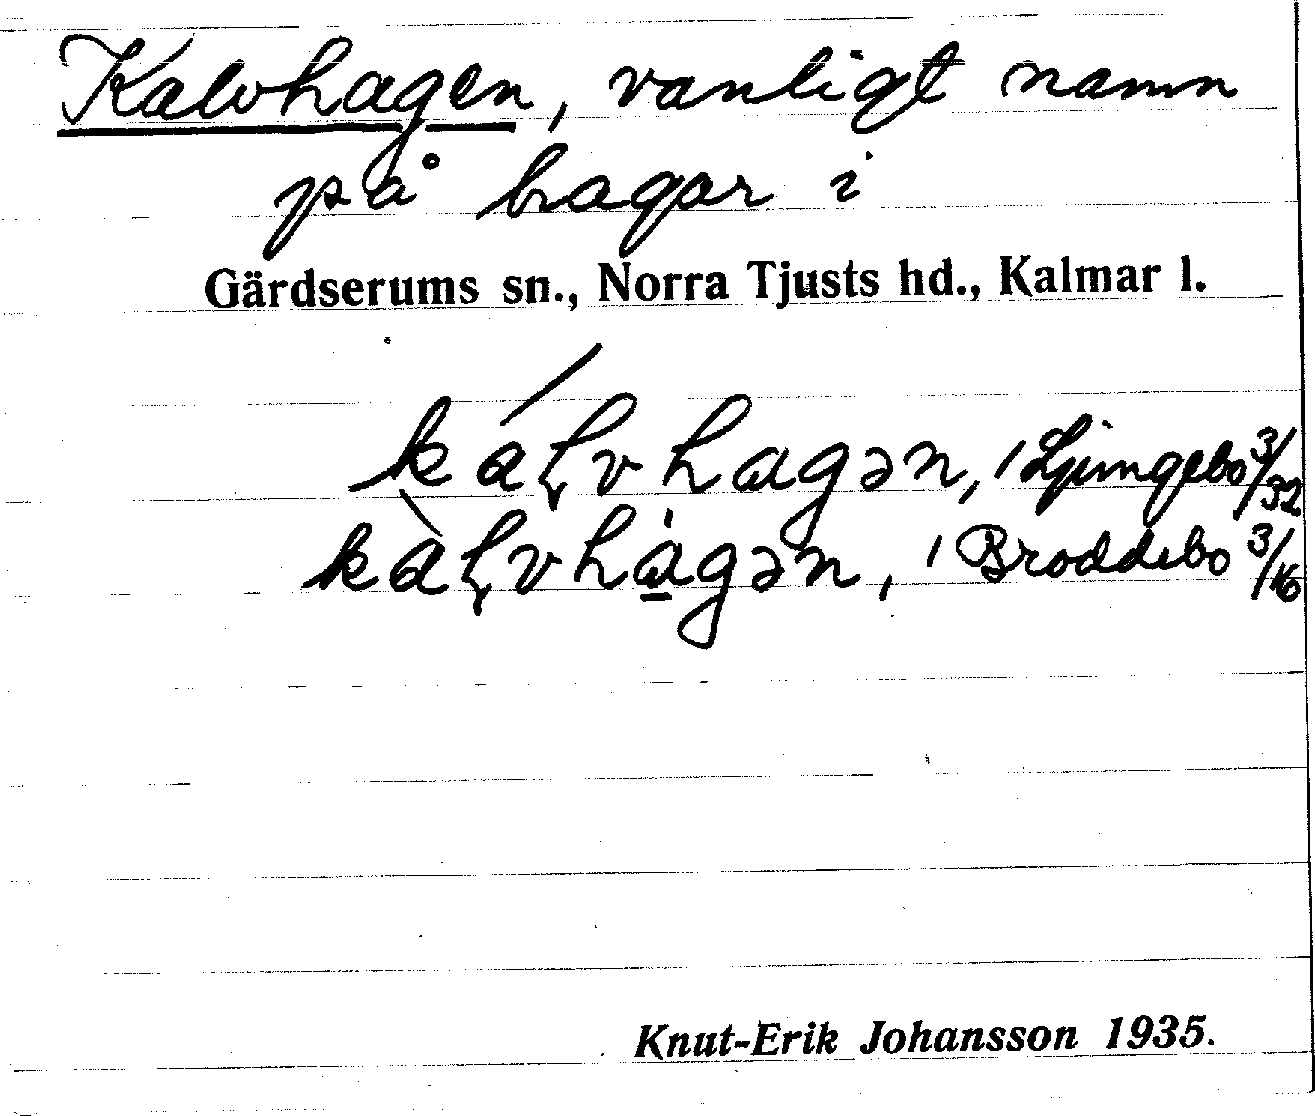 Kalvhagen, vanligt namn
på hagar i
Gärdserums sn., Norra Tjusts hd., Kalmar l.
káɽvhagən, / Ljungebo 3/32
kàɽvhagən, / Broddebo 3/16
Knut-Erik Johansson 1935.